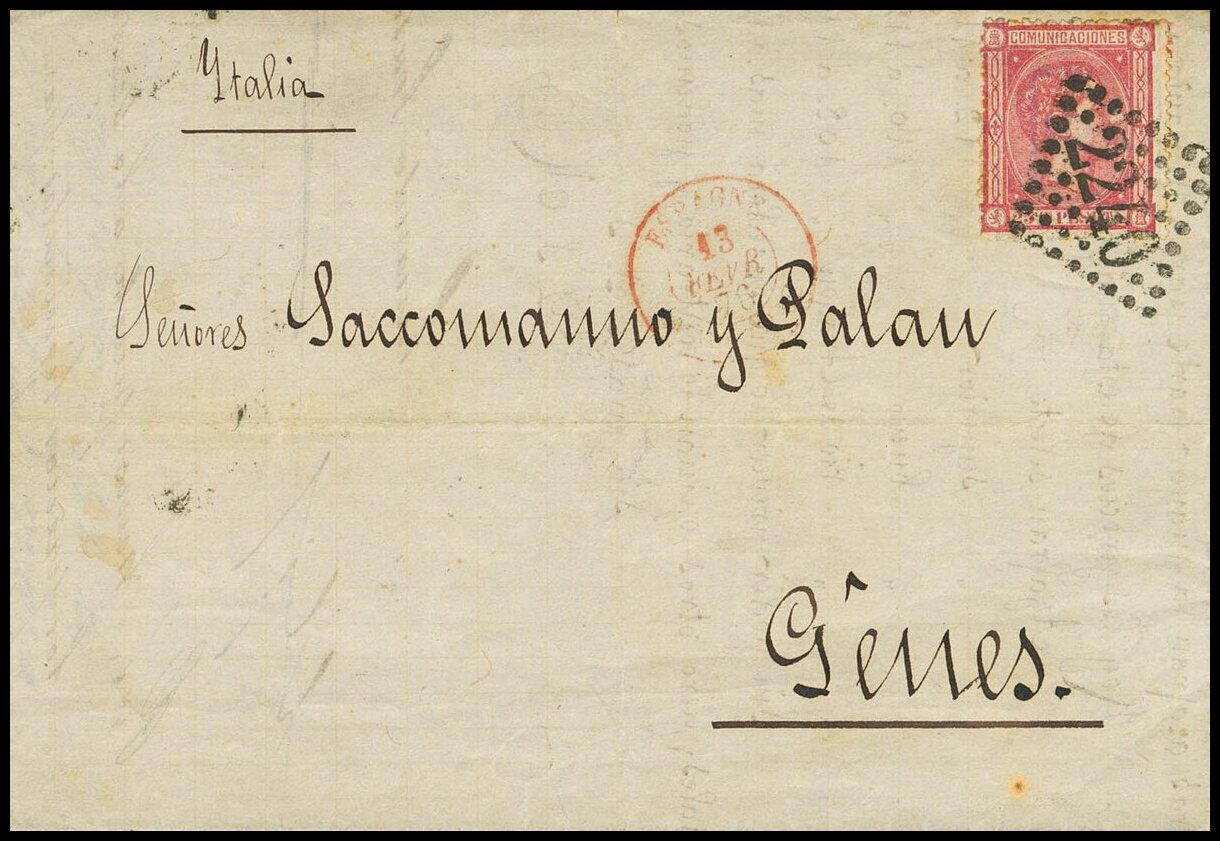 Ytalia
COMUNICACIONES
2240
ESPAGNE
13
FEVR
76
Señores Saccomanno y Palau
Gênes.